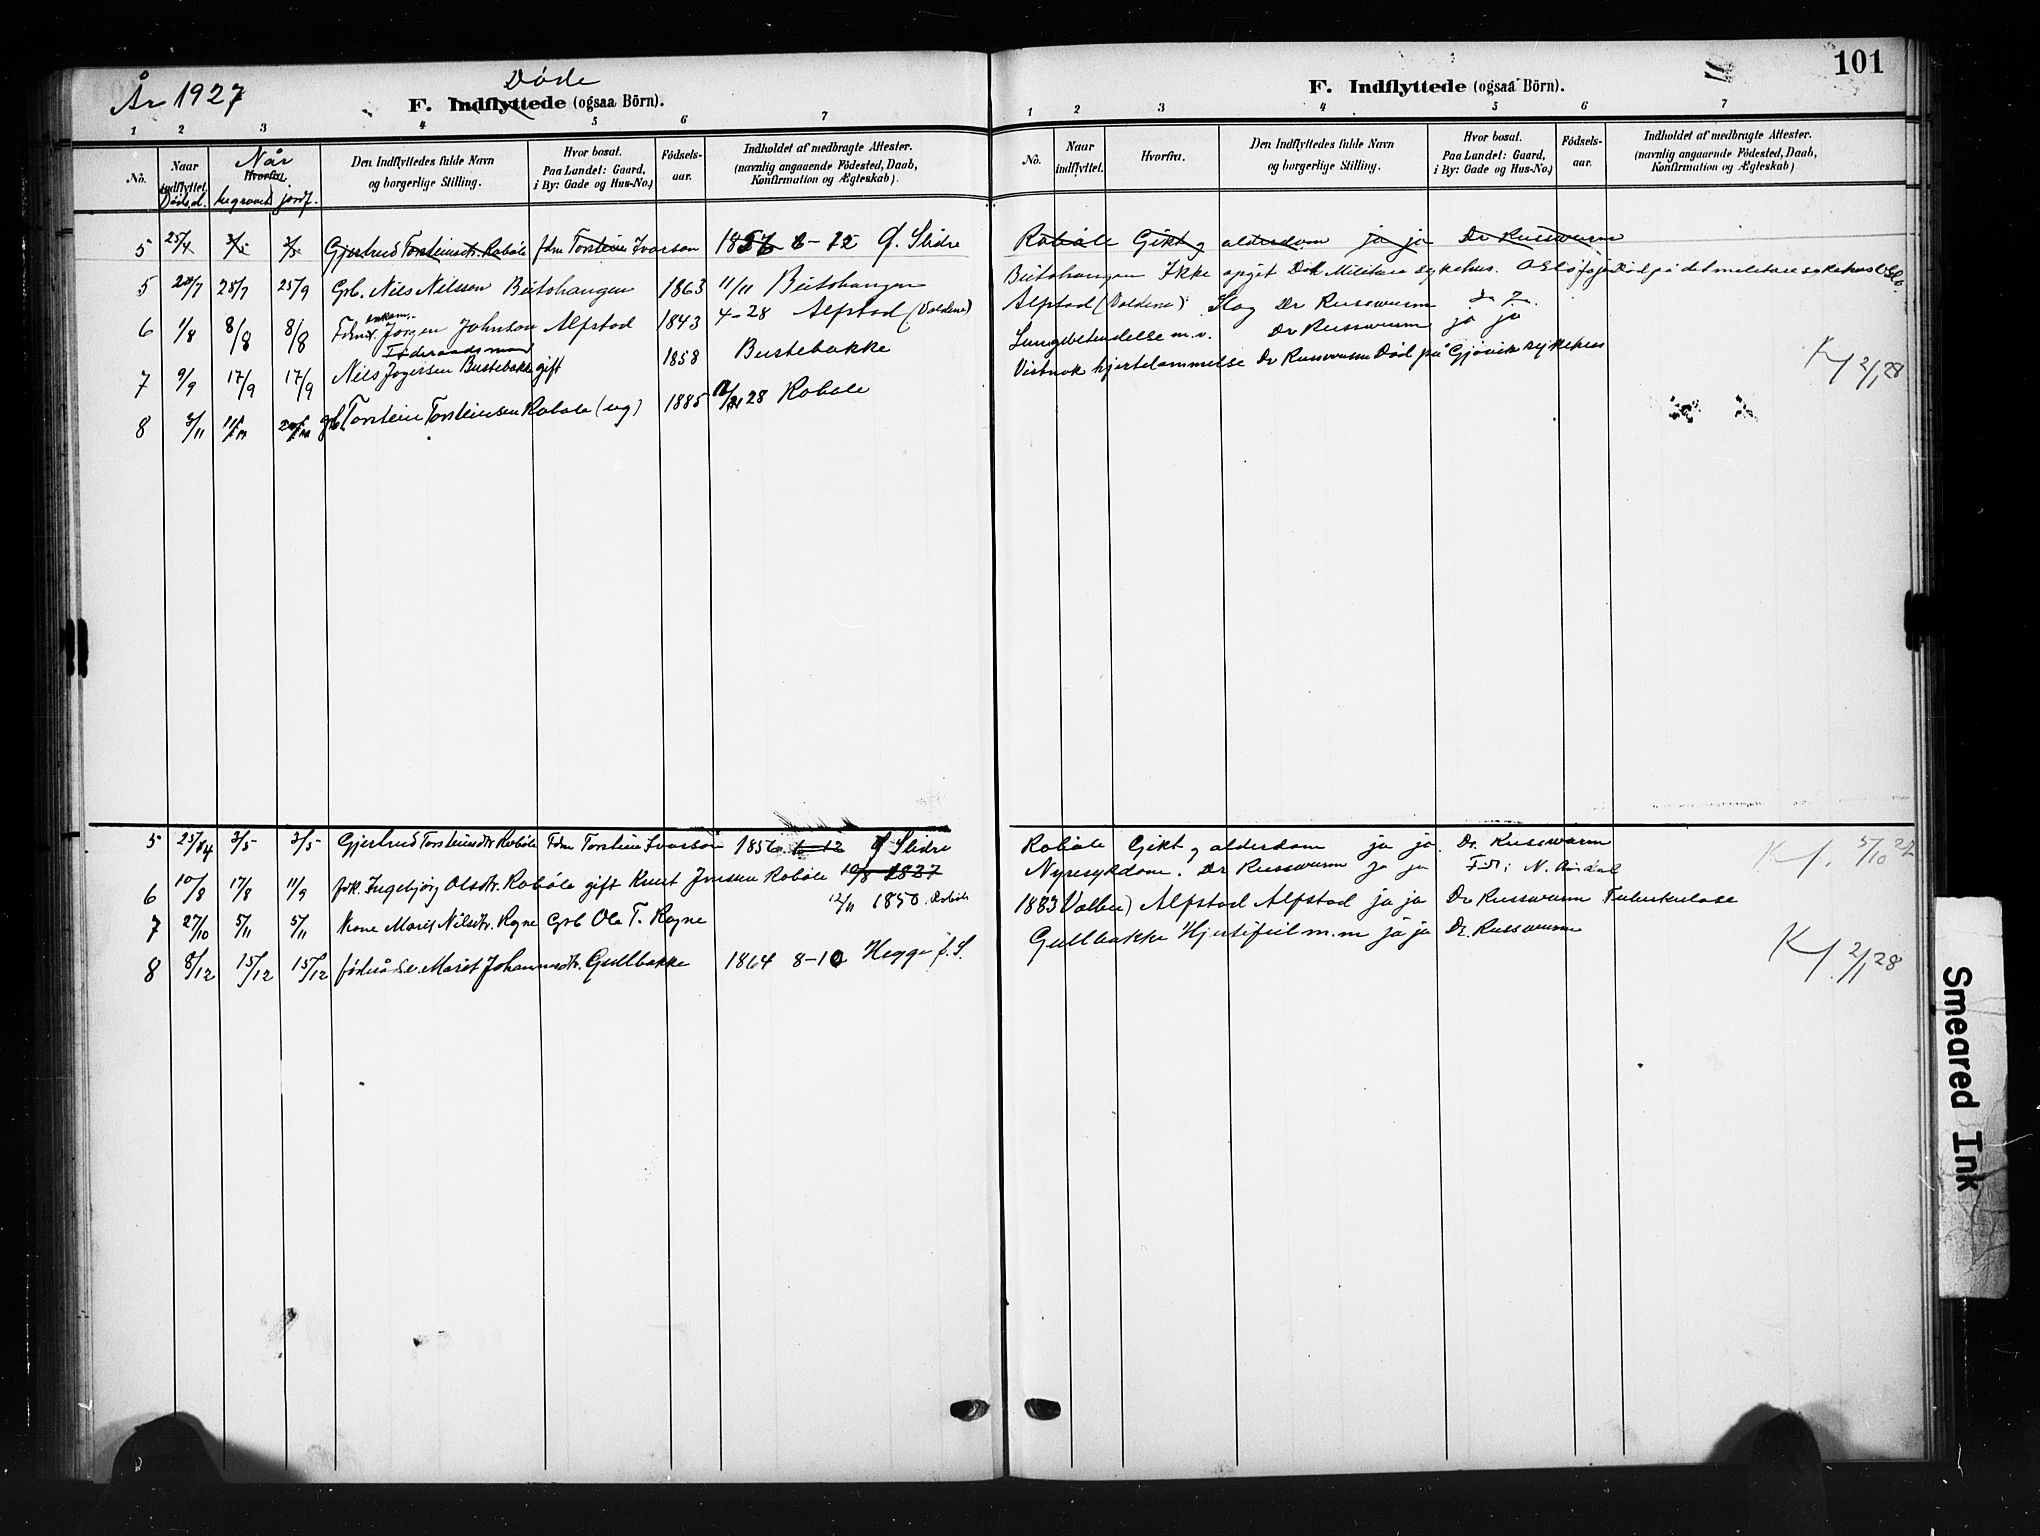 År 1927
Døde
F. Indflyttede (ogsaa Börn).
1 2 3 4 5 6 7
Nô.
Naar indflyttet.
Dødsd.
Når
Hvorfra.
begravet jordf.
Den Indflyttedes fulde Navn
og borgerlige Stilling.
Hvor bosat.
Paa Landet: Gaard,
i By: Gade og Hus-No.)
Födsels-
aar.
Indholdet af medbragte Attester.
(navnlig angaaende Födested, Daab,
Konfirmation og Ægteskab).
5 25/4 3/5 3/5 Gjertrud Torsteinsdtr. Robøle fdm Torstein Ivarson 1856 6-12 Ø. Slidre
5 20/7 25/7 25/9 Grb. Nils Nilsen Beitohaugen 1863 11/11 Beitohaugen
6 1/8 8/8 8/8 Jørgen Johnson Alfstad 1843 4-28 Alfstad (Voldene)
Føderaadsmand
7 9/9 17/9 17/9 Nils Jogersen Bustebakke gift 1858 Bustebakke
8 3/11 11/11 grb. Torstein Torsteinsen Robøle (ug) 1885 28 Robøle
5 25/4 3/5 3/5 Gjertrud Torsteinsdtr Robøle Fdm Torstein Ivarson 1856 6-12 Ø Slidre
6 10/8 17/8 11/9 Ingebjørg Olsdtr. Robøle gift Knut Robøle 10/8 1827
12/11 1850 Robøle
7 27/10 5/11 5/11 Kone Marit Nilsdtr. Rogne Grb Ola T. Rogne
8 8/12 15/12 15/12 Marit Johannesdtr. Gullbakke 1864 8-10 Hegge Ø. S.
101
F. Indflyttede (ogsaa Börn).
1 2 3 4 5 6 7
Nô.
Naar
indflyttet.
Hvorfra.
Den Indflyttedes fulde Navn
og borgerlige Stilling.
Hvor bosat.
Paa Landet: Gaard,
i By: Gade og Hus-No.)
Födsels-
aar.
Indholdet af medbragte Attester.
(navnlig angaaende Födested, Daab,
Konfirmation og Ægteskab)
Robøle Gikt og alderdom ja ja Dr Russwurm
Beitohaugen Ikke opgit Det Militære sykehus. Oslo ja ja Død på det militære sykehus Oslo.
Alfstad (Voldene) Slag Dr Russwurm
Lungebetendelse m.v. Dr Russwurm ja ja
Vistnok hjertelammelse Dr Russwurm Død på Gjøvik sykehus
K/ 2/1 28
Robøle Gikt og alderdom ja ja. Dr. Russwurm
K/. 5/10 27
Nyresykdom. Dr Russwurm ja ja
1883 Alfstad Alfstad ja ja Dr Russwurm Tuberkulose
Gullbakke Hjertefeil m.m ja ja Dr. Russwurm
K/. 2/1 28
Smeared Ink